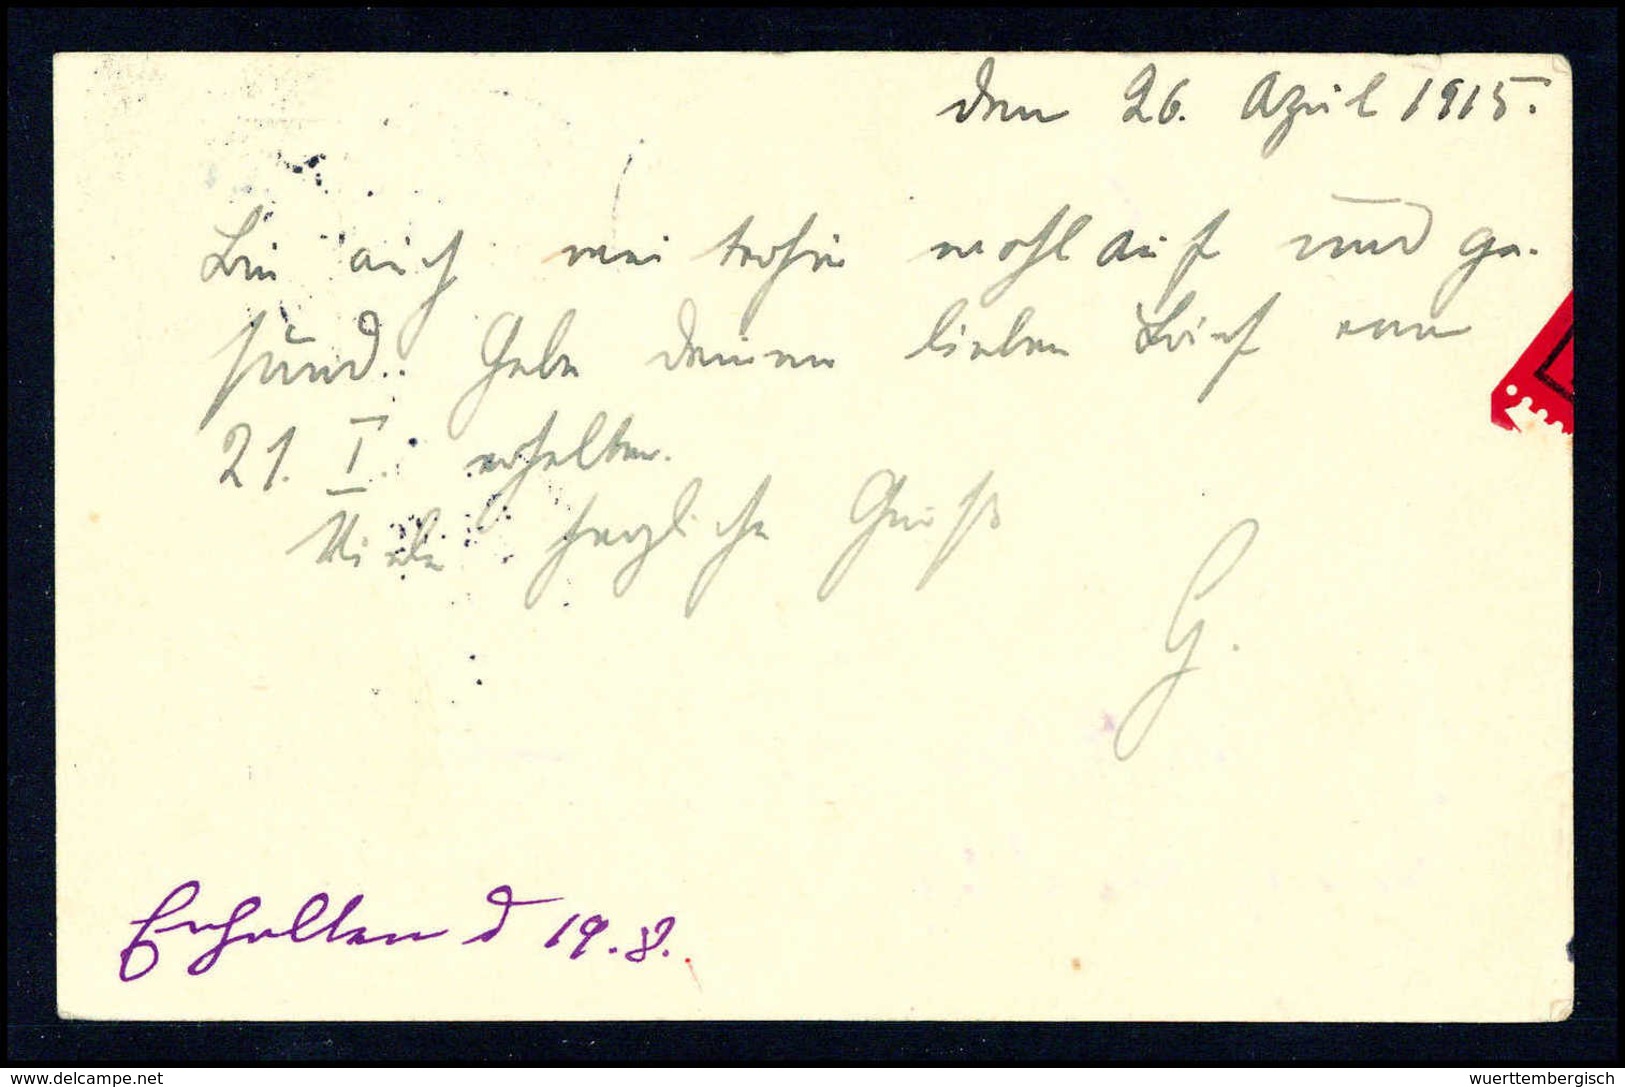 den 26. April 1915.
Bin auch weiterhin wohlauf und ge-
sund. Habe deinen lieben Brief vom
21. I. erhalten.
Viele herzliche Grüße
G.
Erhalten d 19.8.
www.delcampe.net
wuerttembergisch